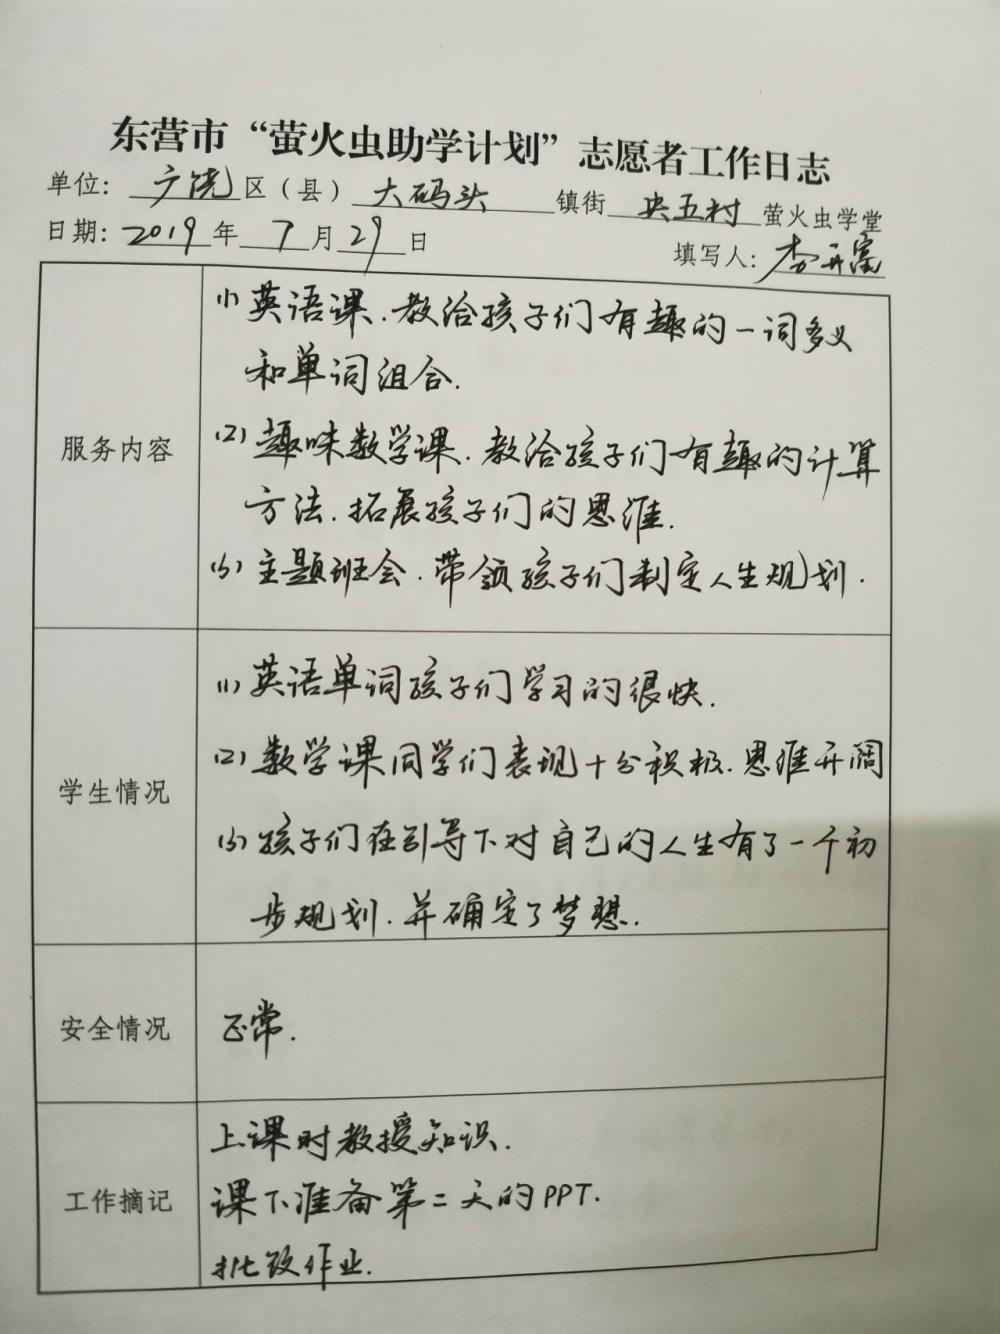 东营市“萤火虫助学计划”志愿者工作日志
单位：广饶区（县）大码头镇街央五村萤火虫学堂
日期：2019年7月29日
填写人：李开
服务内容
(1) 英语课.教给孩子们有趣的一词多义
和单词组合.
(2) 趣味数学课.教给孩子们有趣的计算
方法.拓展孩子们的思维.
(3) 主题班会.带领孩子们制定人生规划.
学生情况
(1) 英语单词孩子们学习的很快.
(2) 数学课同学们表现十分积极.思维开阔
(3) 孩子们在引导下对自己的人生有了一个初
步规划.并确定了梦想.
安全情况
正常.
工作摘记
上课时教授知识.
课下准备第二天的PPT.
批改作业.